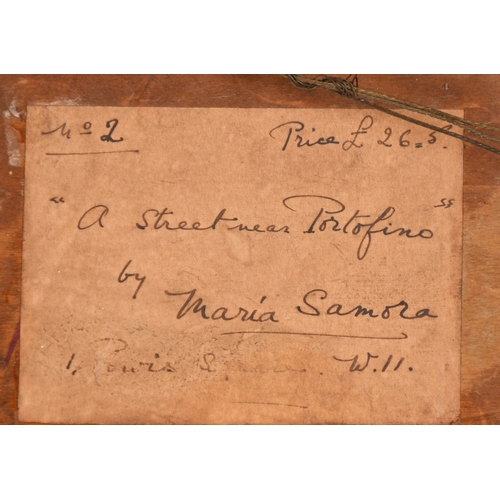 No 2 Price £ 26.5.
"A Street near Portofino"
by
Maria Samora
1, Powis S W.11.